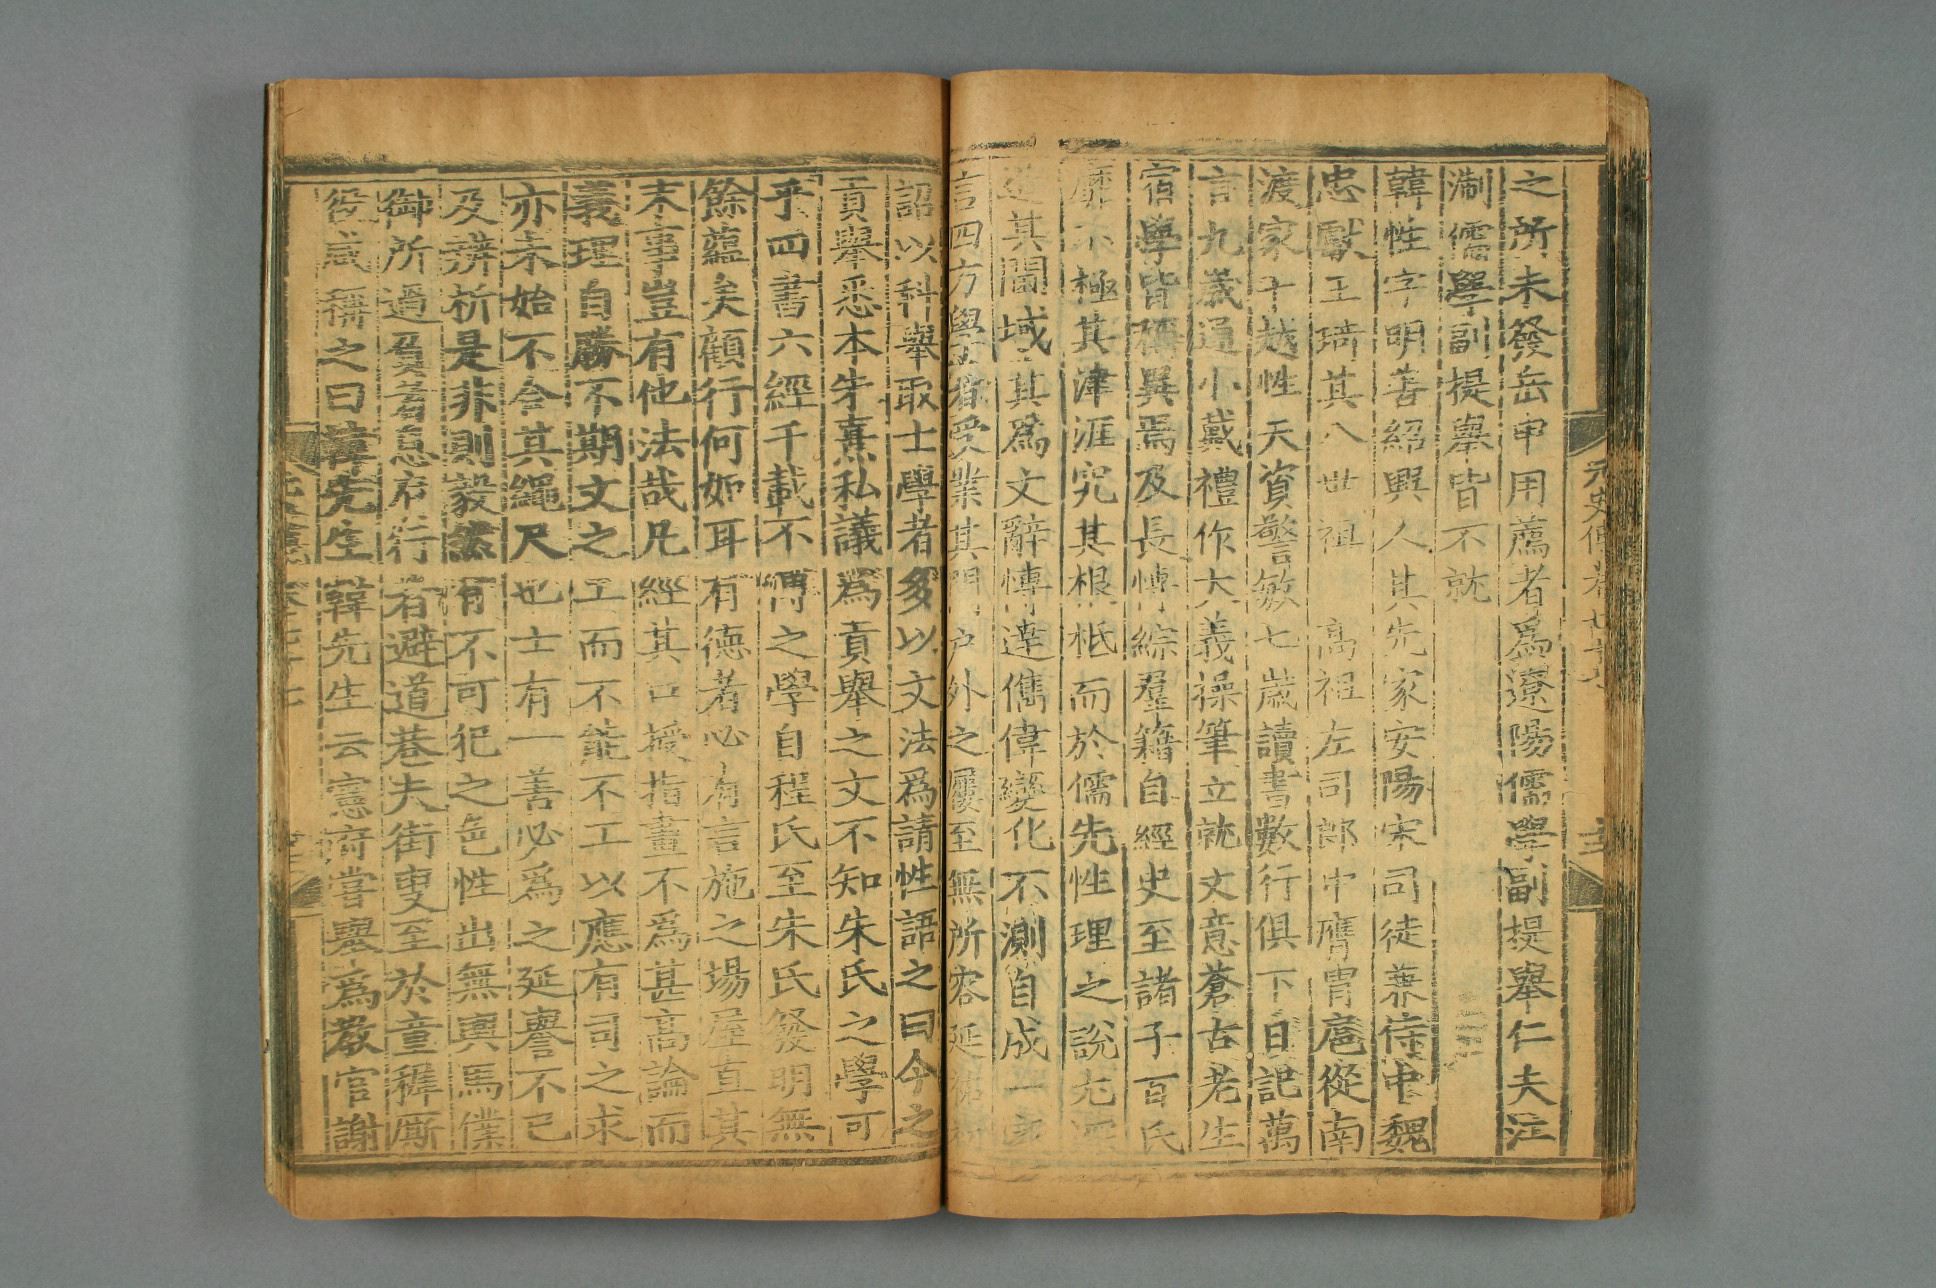 之所未發岳申用薦者爲遼陽儒學副提舉仁夫江
淛儒學副提舉皆不就
韓性字明善紹興人其先家安陽宋司徒兼侍中魏
忠獻王琦其八世祖 高祖左司郎中膺胄扈從南
渡家于越性天資警敏七歲讀書數行俱下日記萬
言九歲通小戴禮作大義操筆立就文意蒼古老生
宿學皆稱異焉及長愽綜羣籍自經史至諸子百氏
靡不極其津涯究其根柢而於儒先性理之說尤深
造其閫域其爲文辭愽達儁偉變化不測自成一家
言四方學者受業其門戶外之屨至無所容延祐初
詔以科舉取士學者多以文法爲請性語之曰今之
貢舉悉本朱熹私議爲貢舉之文不知朱氏之學可
乎四書六經千載不傳之學自程氏至朱氏發明無
餘蘊矣顧行何如耳有德者必有言施之場屋直其
末事豈有他法哉凡經其口授指畫不爲甚高論而
義理自勝不期文之工而不能不工以應有司之求
亦未始不合其繩尺也士有一善必爲之延譽不已
及辨析是非則毅然有不可犯之色性出無輿馬僕
御所過負者息行者避道巷夫街叟至於童穉厮
役咸稱之曰韓先生韓先生云憲府嘗舉爲教官謝
元史傳卷七十七